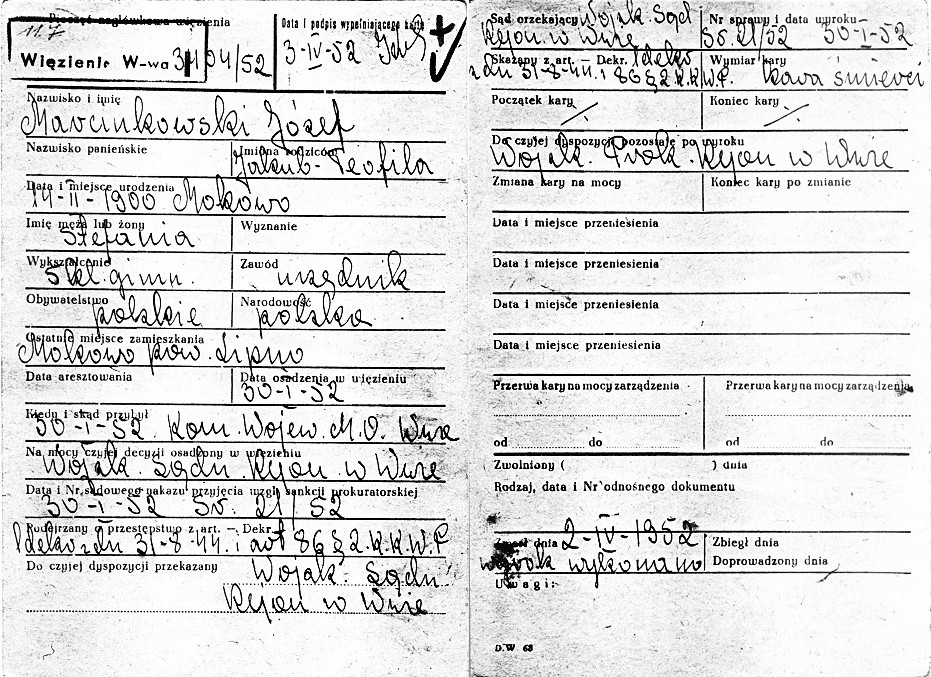 Pieczęć nagłówkowa więzienia
117
Więzienie W-wa 3 04/52
Data i podpis wypełniającego kartę
3-IV-52
Nazwisko i imię
Marcinkowski Józef
Nazwisko panieńskie
Imiona rodziców
Jakub - Teofila
Data i miejsce urodzenia
14-II-1900 Mokowo
Imię męża lub żony
Stefania
Wyznanie
Wykształcenie
5 kl. gimn.
Zawód
urzędnik
Obywatelstwo
polskie
Narodowość
polska
Ostatnie miejsce zamieszkania
Mokowo pow. Lipno
Data aresztowania
Data osadzenia w więzieniu
30-I-52
Kiedy i skąd przybył
30-I-52. Kom. Wojew. M.O. W-wie
Na mocy czyjej decyzji osadzony w więzieniu
Wojsk. Sądu Rejon. w W-wie
Data i Nr. sądowego nakazu przyjęcia wzgl. sankcji prokuratorskiej
30-I-52 Sr. 21/52
Podejrzany o przestępstwo z art. — Dekr.
1 dekr. z dn 31-8-44. i art 86 § 2 K.K.W.P.
Do czyjej dyspozycji przekazany
Wojsk. Sądu
Rejon w W-wie
Sąd orzekający Wojsk. Sąd
Rejon. w W-wie
Nr sprawy i data wyroku
Sr. 21/52 30-I-52
Skazany z art. — Dekr. 1 dekr.
z dn 31-8-44. i 86 § 2 K.K.W.P.
Wymiar kary
kara śmierci
Początek kary
Koniec kary
Do czyjej dyspozycji pozostaje po wyroku
Wojsk. Prok. Rejon w W-wie
Zmiana kary na mocy
Koniec kary po zmianie
Data i miejsce przeniesienia
Data i miejsce przeniesienia
Data i miejsce przeniesienia
Data i miejsce przeniesienia
Przerwa kary na mocy zarządzenia
Przerwa kary na mocy zarządzenia
od do
od do
Zwolniony ( ) dnia
Rodzaj, data i Nr odnośnego dokumentu
Zmarł dnia 2-IV-1952
wyrok wykonano
Zbiegł dnia
Doprowadzony dnia
Uwagi:
D.W. 63